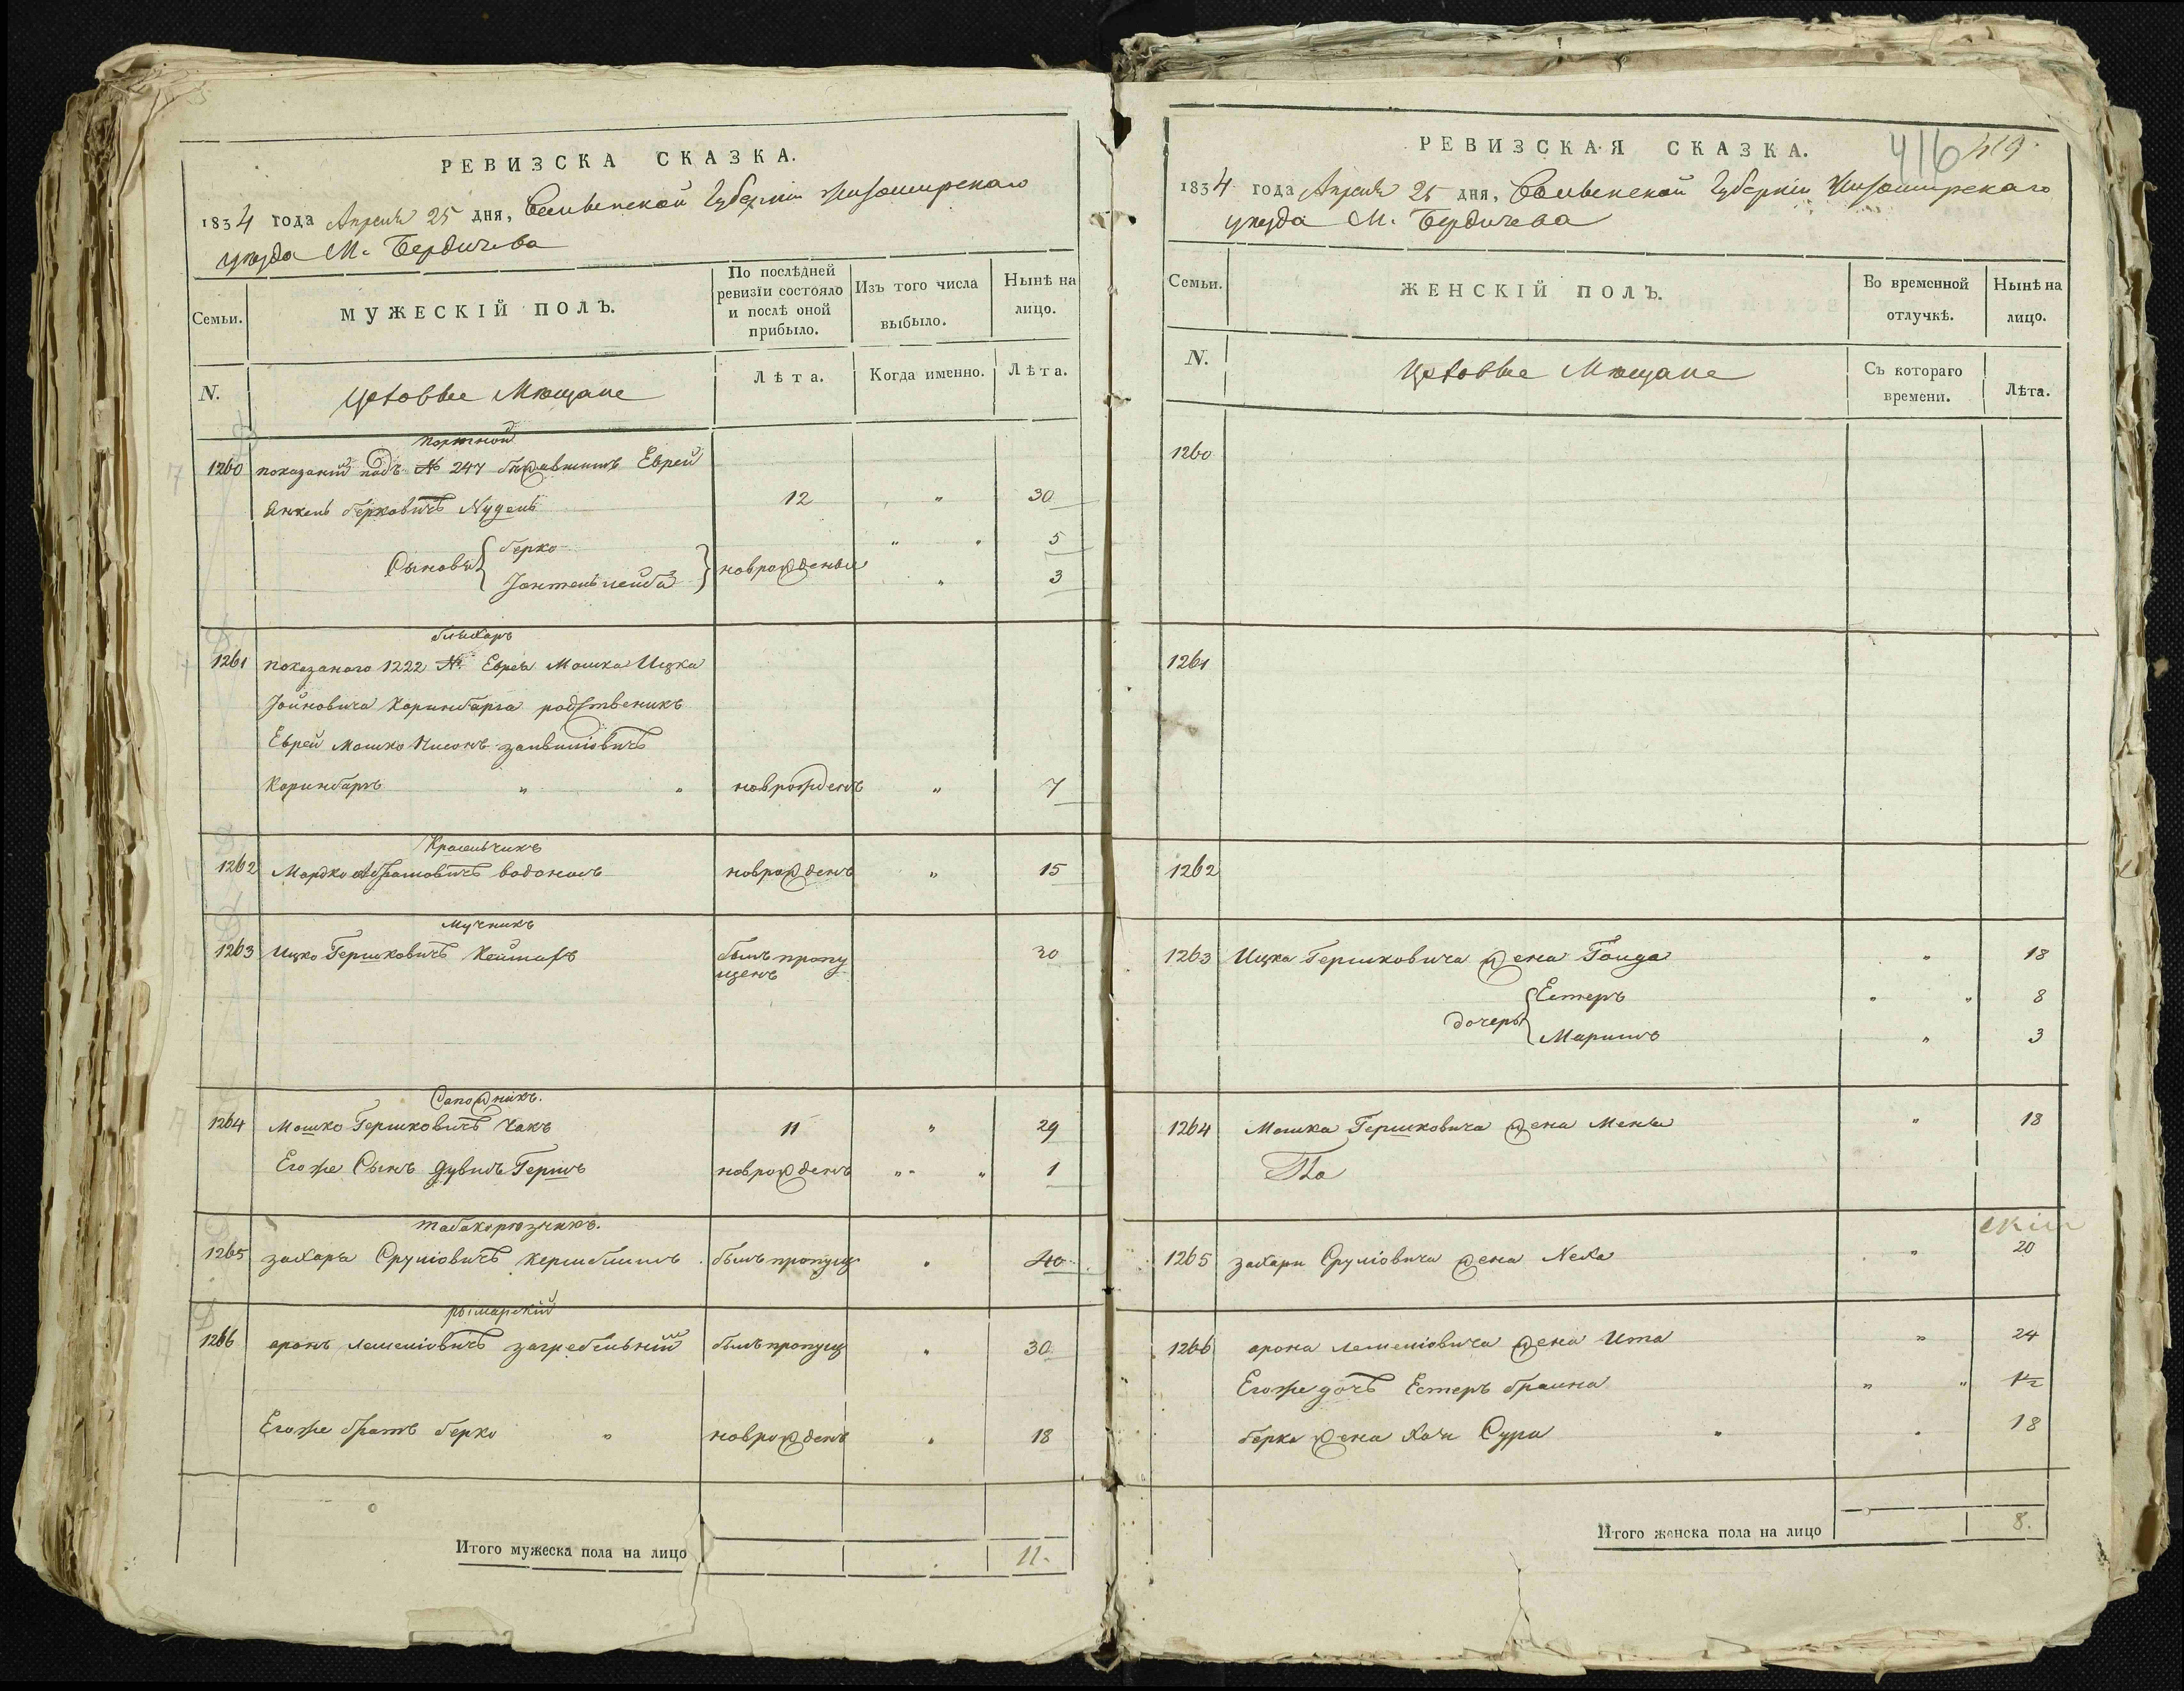 РЕВИЗСКА СКАЗКА.
1834 года Апреля 25 дня, Волынской Губерніи Житомирскаго
уезда М. Бердичева
Семьи.
МУЖЕСКІЙ ПОЛЪ.
По послѣдней ревизіи состояло и послѣ оной прибыло.
Изъ того числа выбыло.
Нынѣ на лицо.
N.
Цеховые Мещане
Лѣта.
Когда именно.
Лѣта.
Портной
1260 показаній подъ № 247 Еврей
Янкель Берковичъ Нудель 12 " 30
Сыновья Берко " " 5
новрожденые
Іонтель Лейба " 3
бляхаръ
1261 показаного 1222 № Еврея Мошка Ицка
Іойновича Коринбарга родственикъ
Еврей Мошко Нисонъ
Коринбаргъ " " новрожденъ " 7
Красильчикъ
1262 Мордко Абрамовичъ новрожденъ " 15
Мучникъ
1263 Ицко Гершковичъ былъ пропу
щенъ 30
Сапожникъ.
1264 Мошко Гершковичъ Чакъ 11 " 29
Егоже Сынъ Дувидъ Гершъ новрожденъ " " 1
1265 Захаръ Сруліовичъ былъ пропущ " 40
рымарскій
1266 аронъ былъ пропущ " 30
Егоже братъ Берко " новрожденъ " 18
Итого мужеска пола на лицо 11.
РЕВИЗСКАЯ СКАЗКА.
416 419
1834 года Апреля 25 дня, Волынской Губерніи Житомирскаго
уезда М. Бердичева
Семьи.
ЖЕНСКІЙ ПОЛЪ.
Во временной отлучкѣ.
Нынѣ на лицо.
N.
Цеховые Мещане
Съ котораго времени.
Лѣта.
1260
1261
1262
1263 Ицка Гершковича жена " 18
дочеры Естеръ " " 8
" 3
1264 Мошка Гершковича жена " 18
1265 Захари Сруліовича жена Неха " 20
1266 арона жена Ита " 24
Егоже дочь Естеръ Браина " " 1½
Берка жена Хая Сура " " 18
Итого женска пола на лицо 8.